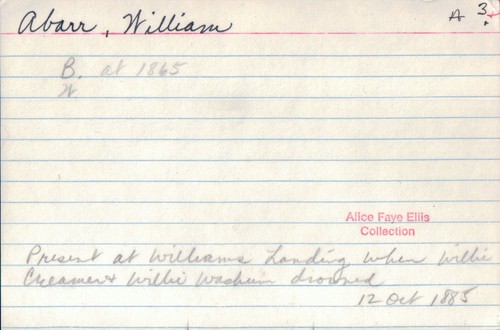 Abarr, William
A 3.
B. at 1865
W
Alice Faye Ellis
Collection
Present at Williams Landing when Willie
Creamer & Willie drowned
12 Oct 1885